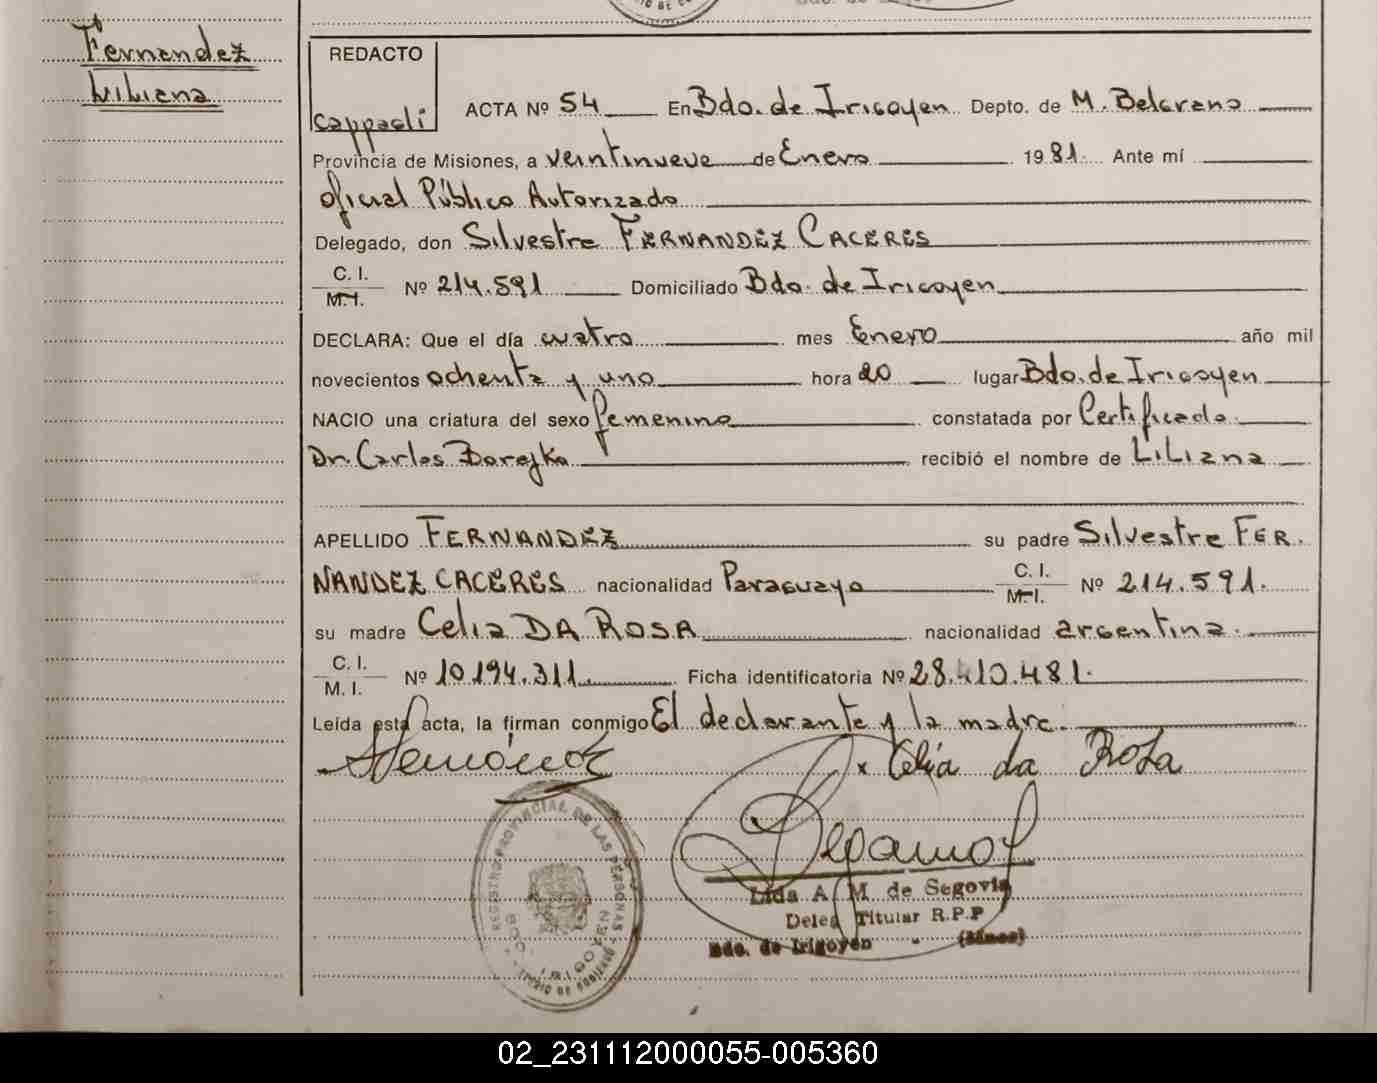 Fernandez
Liliana
REDACTO
Cappaoli
ACTA Nº 54 En Bdo. de Irigoyen Depto. de M. Belgrano
Provincia de Misiones, a veintinueve de Enero 1981. Ante mí
oficial Público Autorizado
Delegado, don Silvestre FERNANDEZ CACERES
C. I.
M. I. Nº 214.591 Domiciliado Bdo. de Irigoyen
DECLARA: Que el día cuatro mes Enero año mil
novecientos ochenta y uno hora 20 lugar Bdo. de Irigoyen
NACIO una criatura del sexo femenino constatada por Certificado
Dr. Carlos Borejko recibió el nombre de LiLiana
APELLIDO FERNANDEZ su padre Silvestre FER.
NANDEZ CACERES nacionalidad Paraguayo C. I. M. I. Nº 214.591.
su madre Celia DA ROSA nacionalidad argentina.
C. I.
M. I. Nº 10.194.311 Ficha identificatoria Nº 28.410.481.
Leída esta acta, la firman conmigo El declarante y la madre.
x Celia da Rosa
REGISTRO PROVINCIAL DE LAS PERSONAS
BDO. IRIGOYEN
Lida A. M. de Segovia
Deleg Titular R.P.P
Bdo. de Irigoyen - (Mnes)
02_231112000055-005360